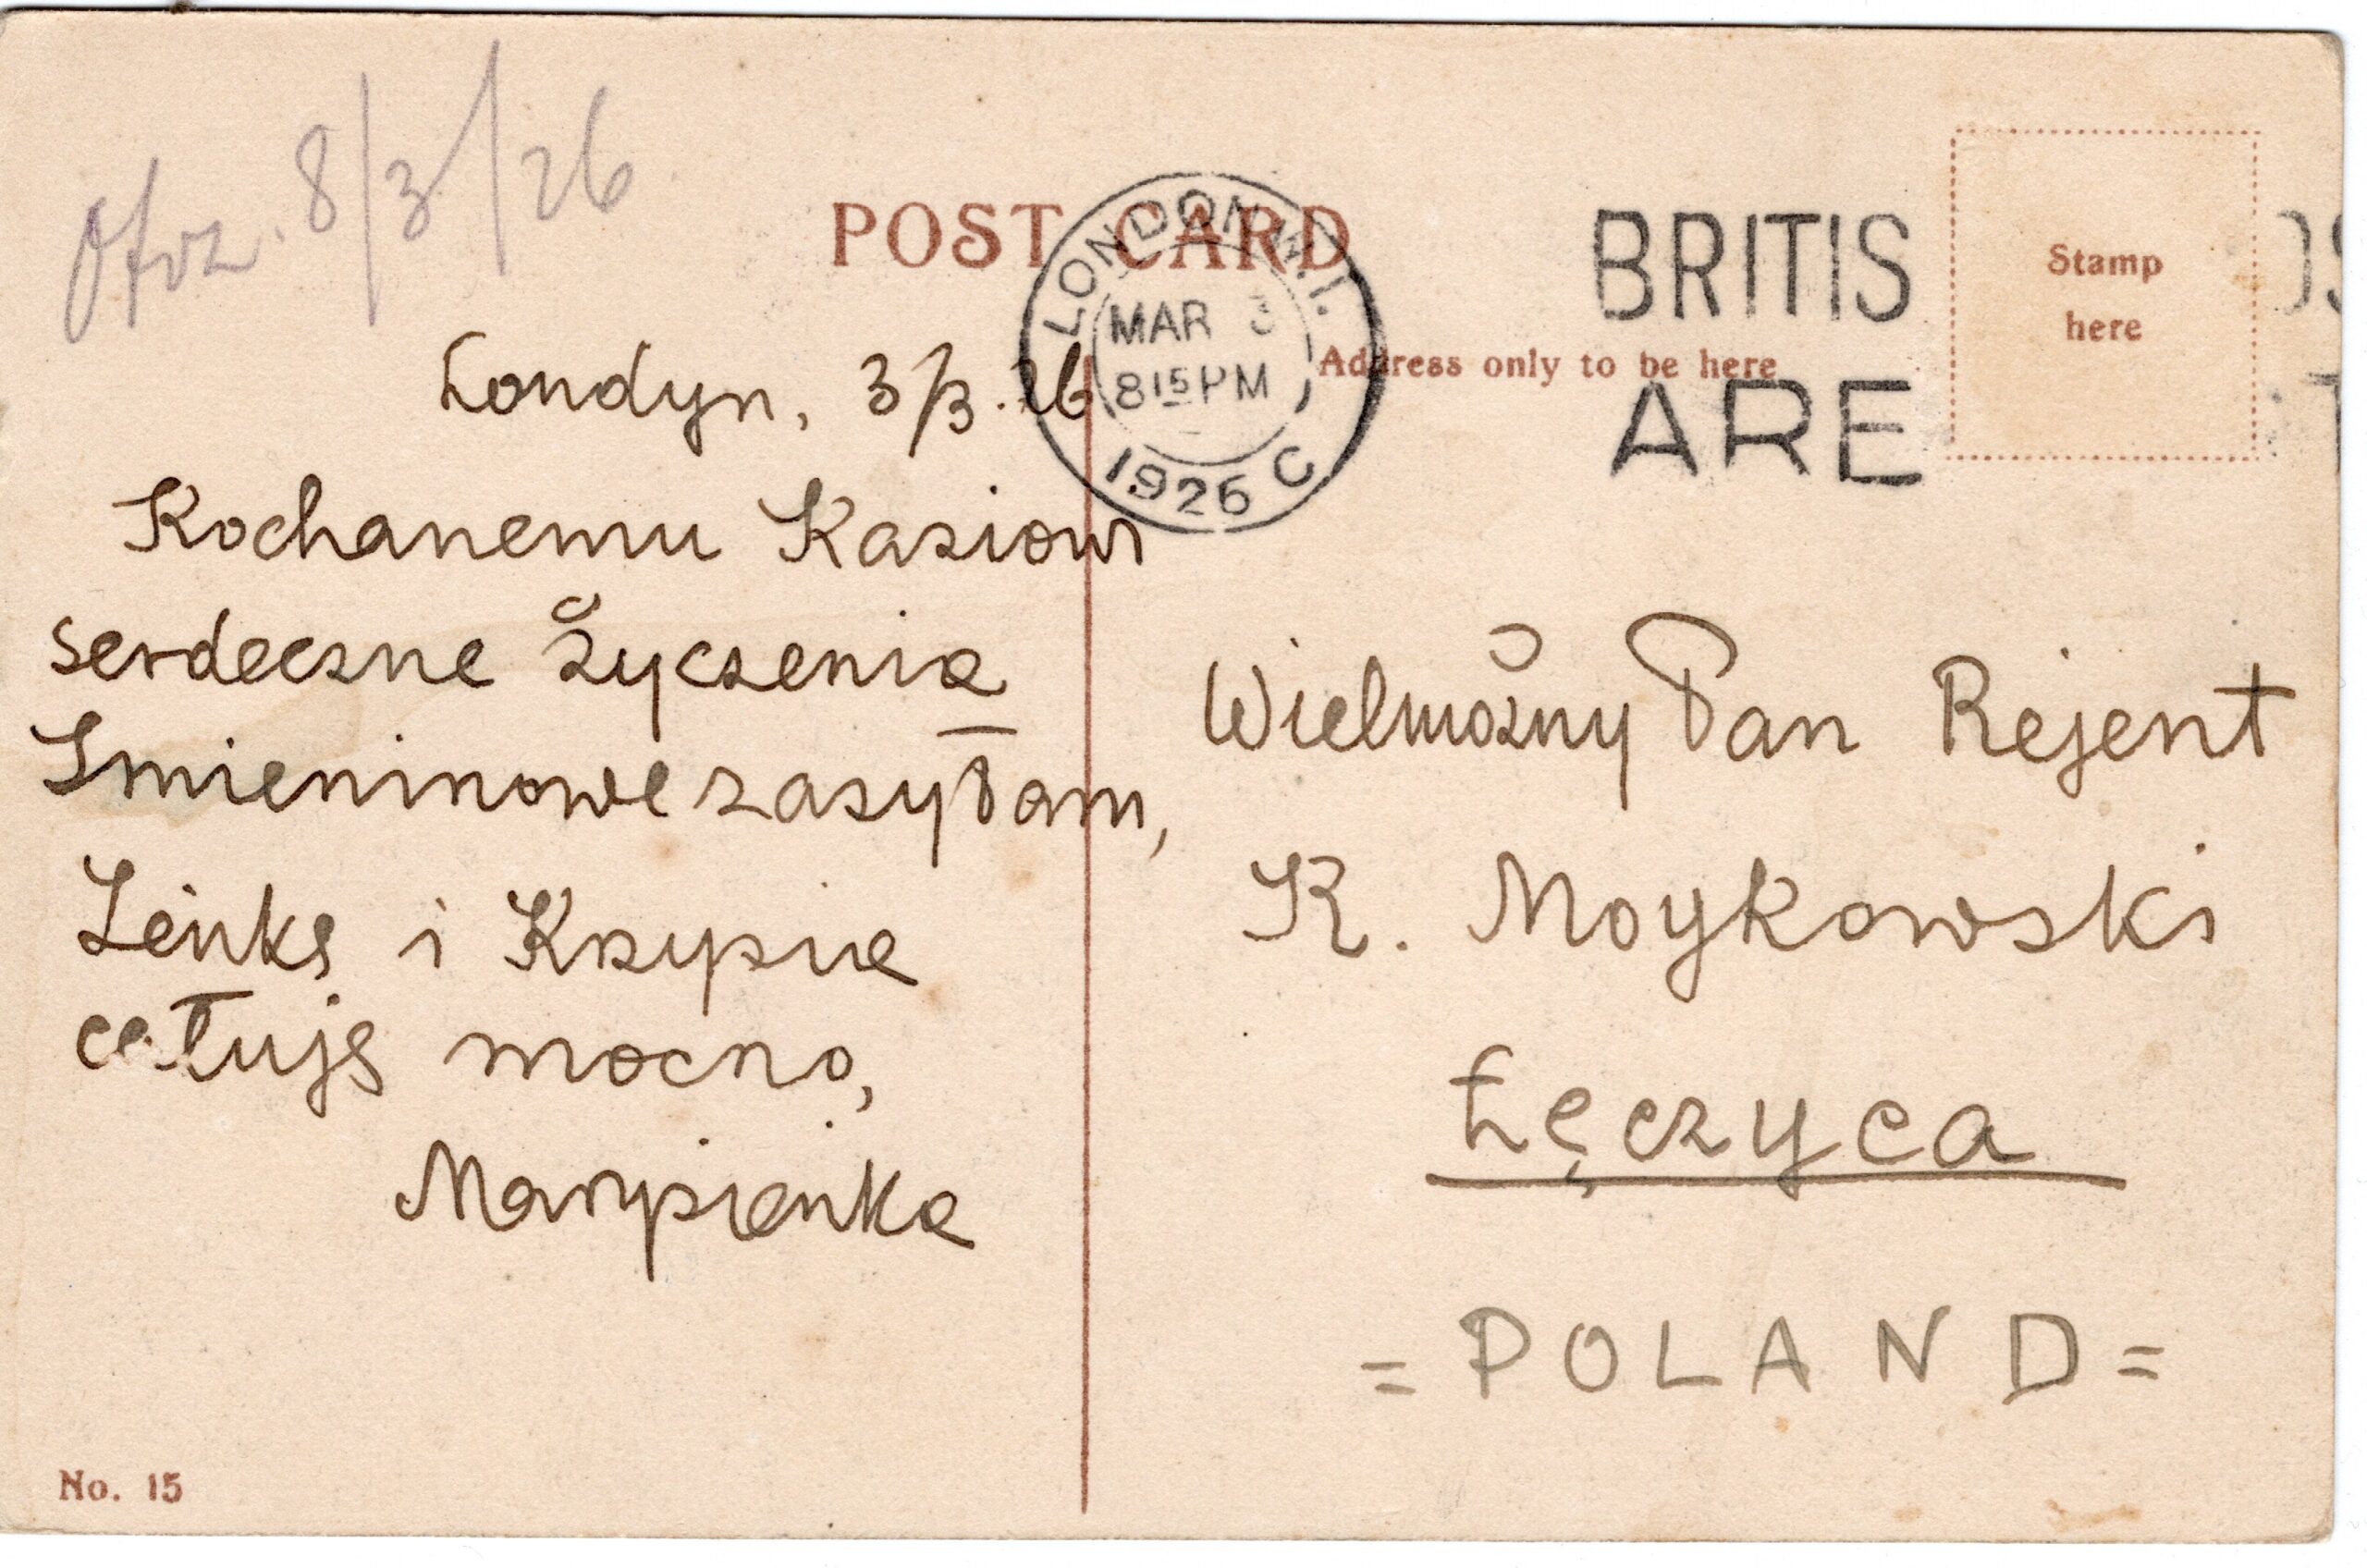 Otrz. 8/3/26
POST CARD
LONDON. W.1.
MAR 3
8 15 PM
1926 C
BRITIS
ARE
Stamp
here
Address only to be here
Londyn, 3/3.26
Kochanemu Kaziowi
serdeczne życzenia
Imieninowe zasyłam,
Leńkę i Krzysię
całuję mocno,
Marysieńka
Wielmożny Pan Rejent
K. Moykowski
Łęczyca
= POLAND =
No. 15